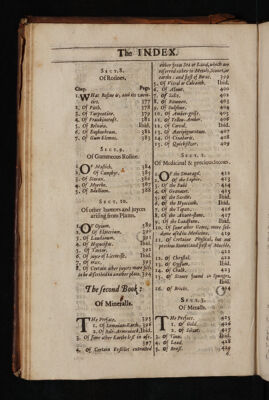 The INDEX.
SECT. 8.
Of Rosines.
Chap. Page.
1. What Rosine is, and its varieties. 377
2. Of Pitch. 378
3. Of Turpentine. 379
4. Of Frankincense. 381
5. Of Ibid.
6. Of Euphorbium. 382
7. Of Gum Elemni. 383
SECT. 9.
Of Gummeous Rosine.
1. Of Mastich. 384
2. Of Camphyr.
3. Of Storax. 386
4. Of Myrrhe. 387
5. Of Bdellium. 388
SECT. 10.
Of other humors and juyces
arising from Plants.
1. Of Opium. 389
2. Of 390
3. Of Laudanum. 391
4. Of Hypocistis. Ibid.
5. Of Tartar.
6. Of juyce of Licorise. Ibid.
7. Of wax.
8. Of Certain other juyces more fit
to be described in another place. 394
The second Book:
Of Minerals.
The Preface. 395
1. Of Lemnian Earth. 396
2. Of Bole-Armoniack. Ibid.
3. Of some other Earths less in use.
397
4. Of Certain Fossiles extracted
either from Sea or Land, which are
referred either to Metals, Stones, or
earths: and first of Borax. 399
5. Of Vitriol or Calcanth. Ibid.
6. Of Alume. 400
7. Of Salt. 402
9. Of Sulphur. 404
10. Of Amber-griss. 405
11. Of Yellow-Amber. 406
12. Of Ibid.
13. Of Auripigmentum. 407
14. Of Cinabaris. 408
15. Of Quicksilver. 409
SECT. 2.
Of Medicinal & precious stones.
1. Of the Smaragd. 411
2. Of the Saphir. 413
3. Of the Rubi 414
4. Of Granates. 415
5. Of the Ibid.
6. Of the Hyacinth. Ibid.
7. Of the Topaz. 416
8. Of the 417
9. Of the Loadstone. Ibid.
10. Of some other Gems, more seldome
used in Medicine. 419
11. Of Certaine Physical, but not
precious stones; and first of Marble.
12. Of Christal. 422
13. Of Gypsum. Ibid.
14. Of Chalk.
15. Of Stones found in Sponges.
Ibid.
16. Of Bricks. 424
SECT. 3.
Of Metalls.
The Preface. 425
1. Of Gold. 426
2. Of Silver. 427
3. Of Tinn. Ibid.
4. Of Lead. 428
5. Of Brass. 429